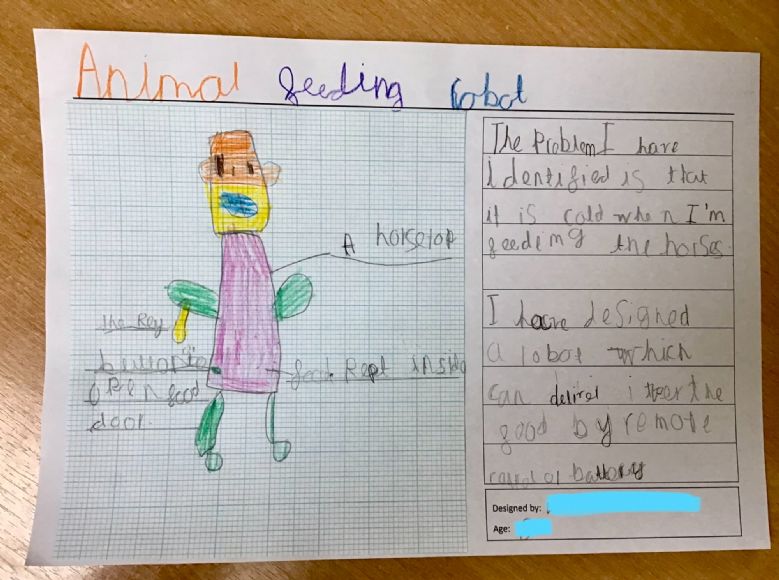 Animal feeding robot
A horsetop
the key
button to
open food
door.
food kept inside
The Problem I have
identified is that
it is cold when I'm
feeding the horses.
I have designed
a robot which
can
the
food by remote
battery
Designed by:
Age: